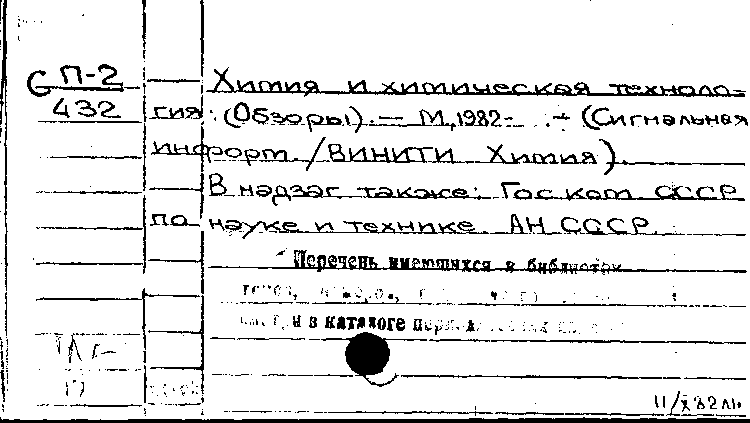 С П-2
432
Химия и химическая техноло-
гия: (Обзоры). — М, 1982- . — (Сигнальная
информ. / ВИНИТИ Химия).
В надзаг. также: Гос ком. СССР
по науке и технике. АН СССР.
Перечень имеющихся в библиотеке
и в каталоге
11/X 82